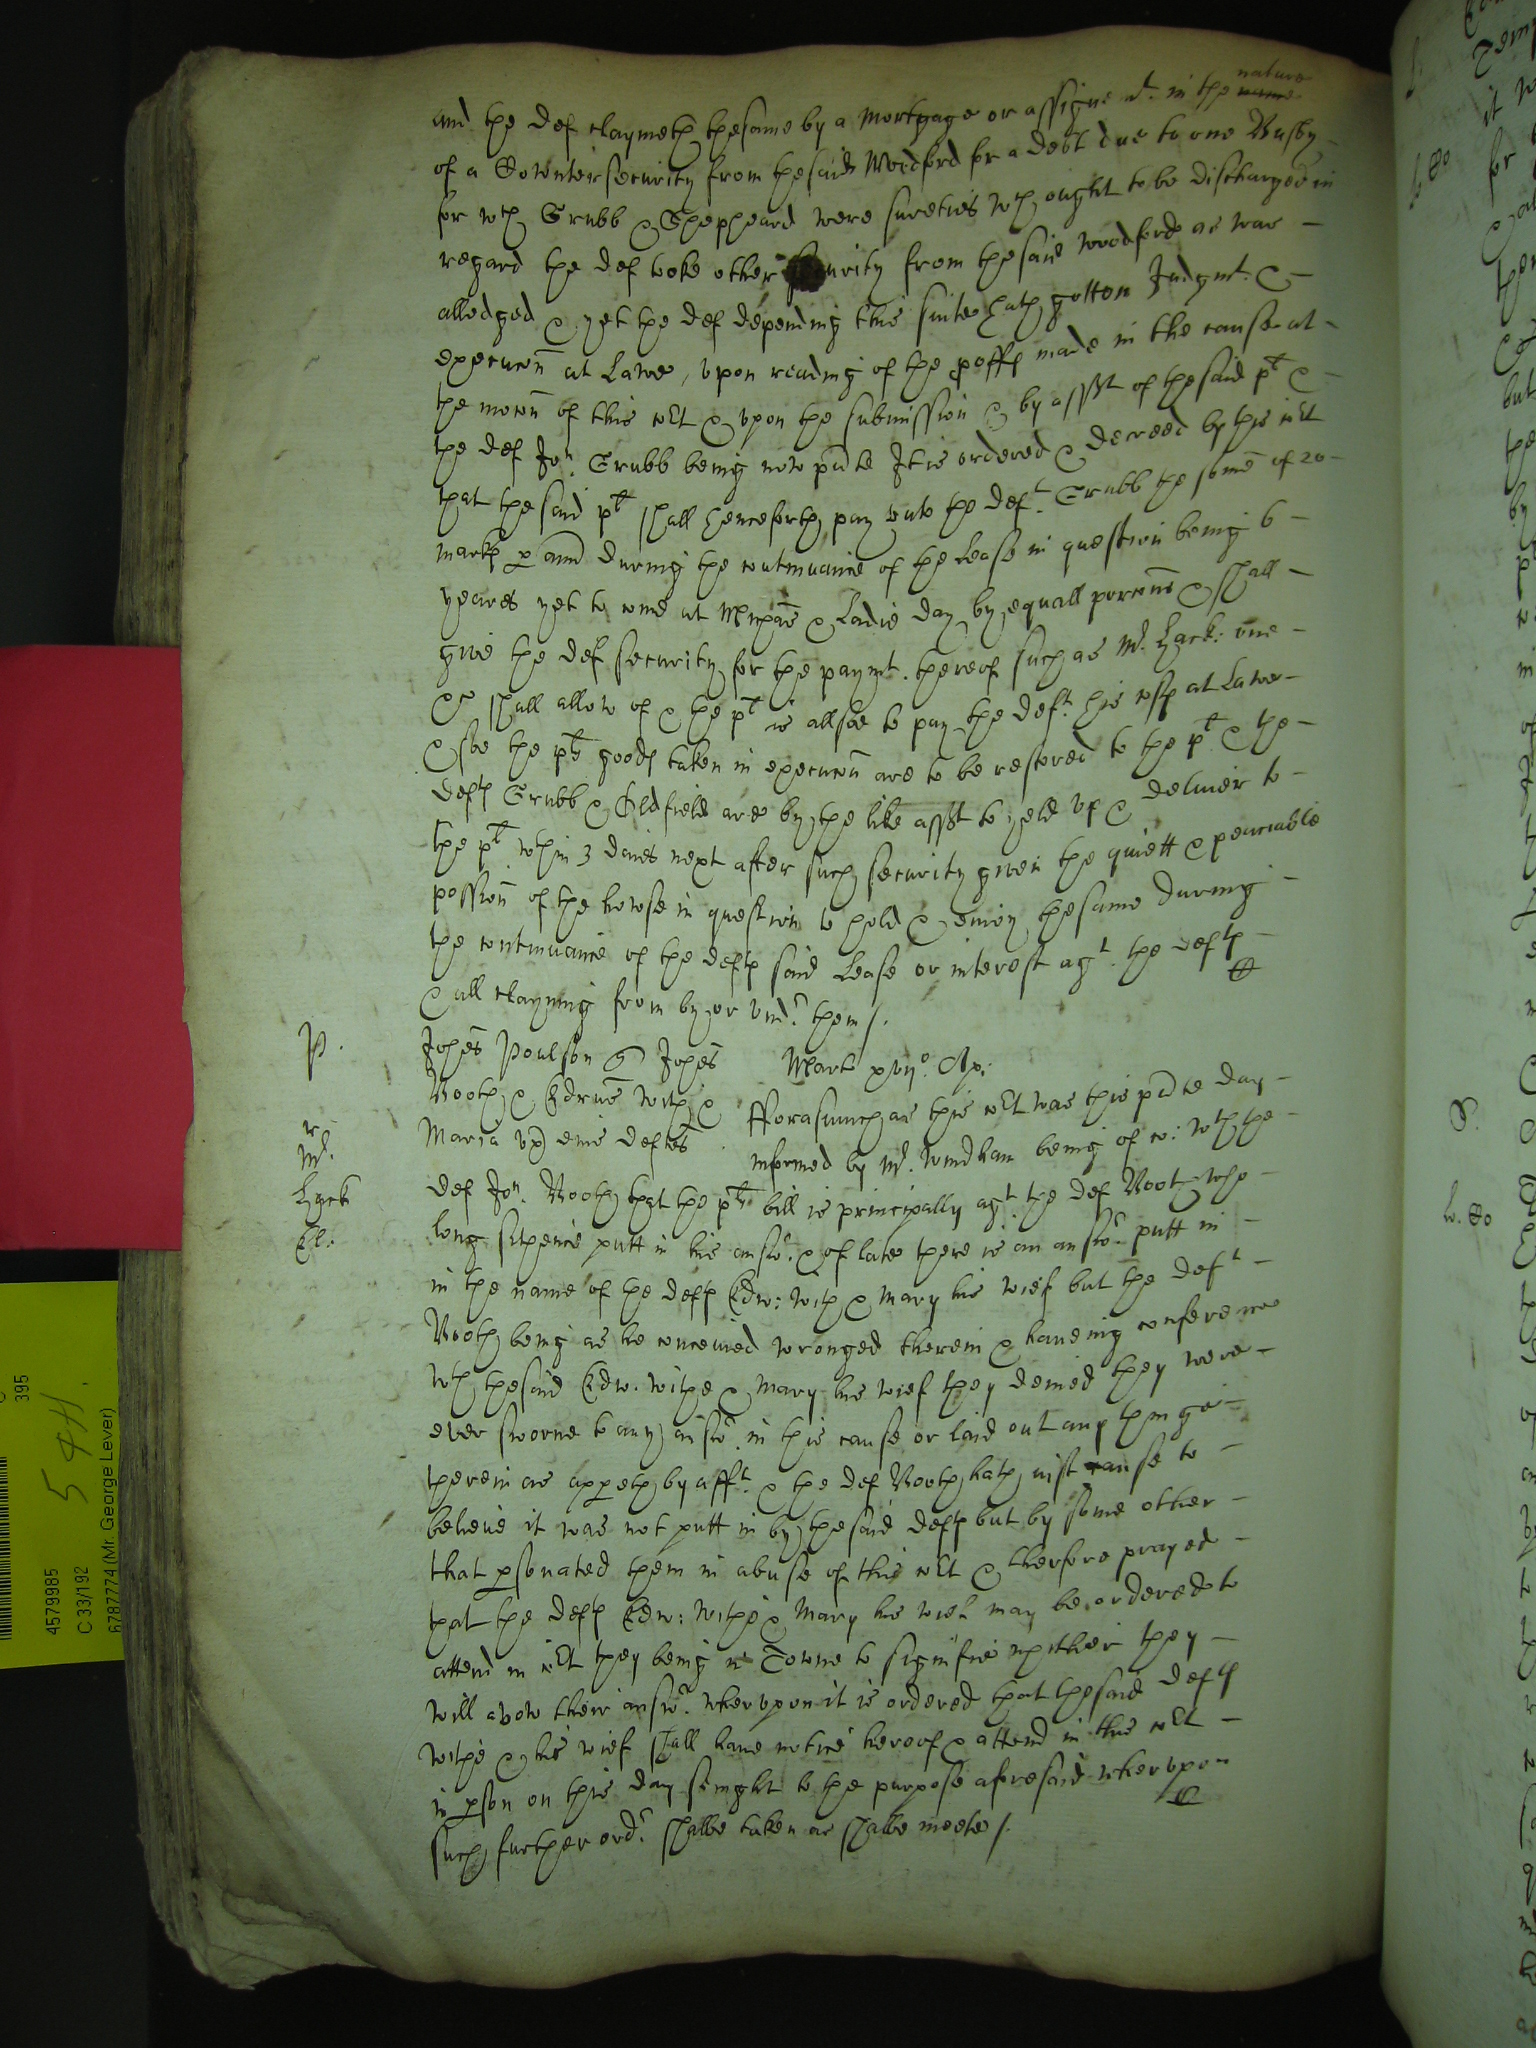 and the def claymeth thesame by a mortgage or assignemt. in the name nature
of a Counter security from thesaid Woodford for a debt due to one Busby
for wch Grubb & Shepheard were sureties wch ought to be discharged in
regard the def tooke other security from thesaid Woodford as was
alledged & yet the def depending this suite hath gotton Judgmt. &
execucon at Lawe, upon reading of the proffs made in the cause at
the mocon of this cot & upon the submission & by assent of thesaid plt &
the def Jon. Grubb being now pnte It is ordered & decreed by this cot
that thesaid plt shall henceforth pay unto the deft. Grubb the some of 20
marks p ann during the contynuance of the Lease in question being 6
yeares yet to come at Michas & Ladie day by equall porcons & shall
give the def security for the paymt. thereof such as Mr. Hack: one
&c shall allow of & the plt is allsoe to pay the deft. his costs at Lawe
& soe the plts goods taken in execucon are to be restored to the plt & the
defts Grubb & Oldfield are by the like assent to yeld up & deliver to
the plt wthin 3 daies next after such security given the quiett & peaceable
possion of the howse in question to hold & enioy thesame during
the contynuance of the defts said Lease or interest agt. the defts
& all clayming from by or undr. them /.
P. Johes Poulson q Johes Marts xviio. Apr.
Booth & Edrus With & fforasmuch as this cot was this pnte day
r Maria ux eius deftes informed by Mr. Windham being of co: wth the
Mr. def Jon. Booth that the plts bill is principally agt. the def Booth who
Hack long sithence putt in his answr. & of late there is an answr. putt in
El: in the name of the defts Edw: With & Mary his wief but the deft
Booth being as he conceived wronged therein & haveing conference
wth thesaid Edw. Withe & Mary his wief they denied they were
ever sworne to any answr. in this cause or laid out any thinge
therein as appeth by afft. & the def Booth hath iust cause to
beleive it was not putt in by thesaid defts but by some other
that psonated them in abuse of this cot & therfore prayed
that the defts Edw: Withe & Mary his wief may be ordered to
attend in cot they being in Towne to signifie whither they
will avow their answr. wherupon it is ordered that thesaid defts
Withe & his wief shall have notice hereof & attend in this cot
in pson on this day senight to the purpose aforesaid wherupon
such further ordr. shalbe taken as shalbe meete /.
395
5 4H.
4579985
C 33/192
6787774 (Mr. George Lever)